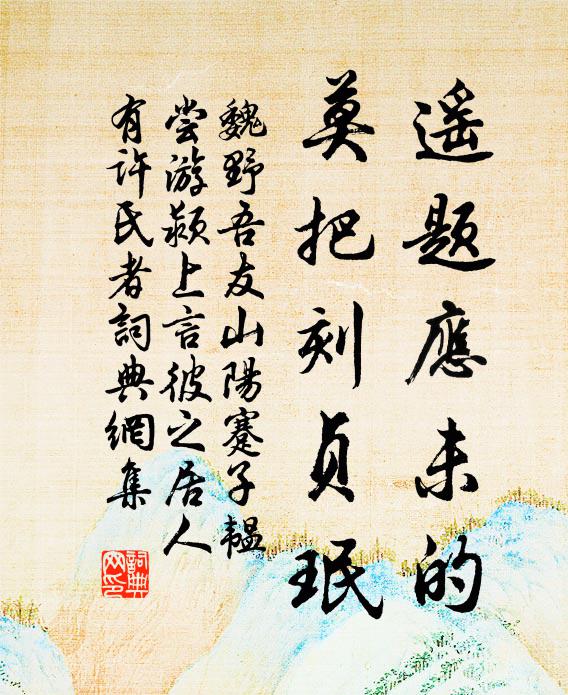 遥题應未的
莫把刻貞珉
魏野吾友山陽蹇子韞
尝游颍上言彼之居人
有许氏者詞典網集
詞典
网印